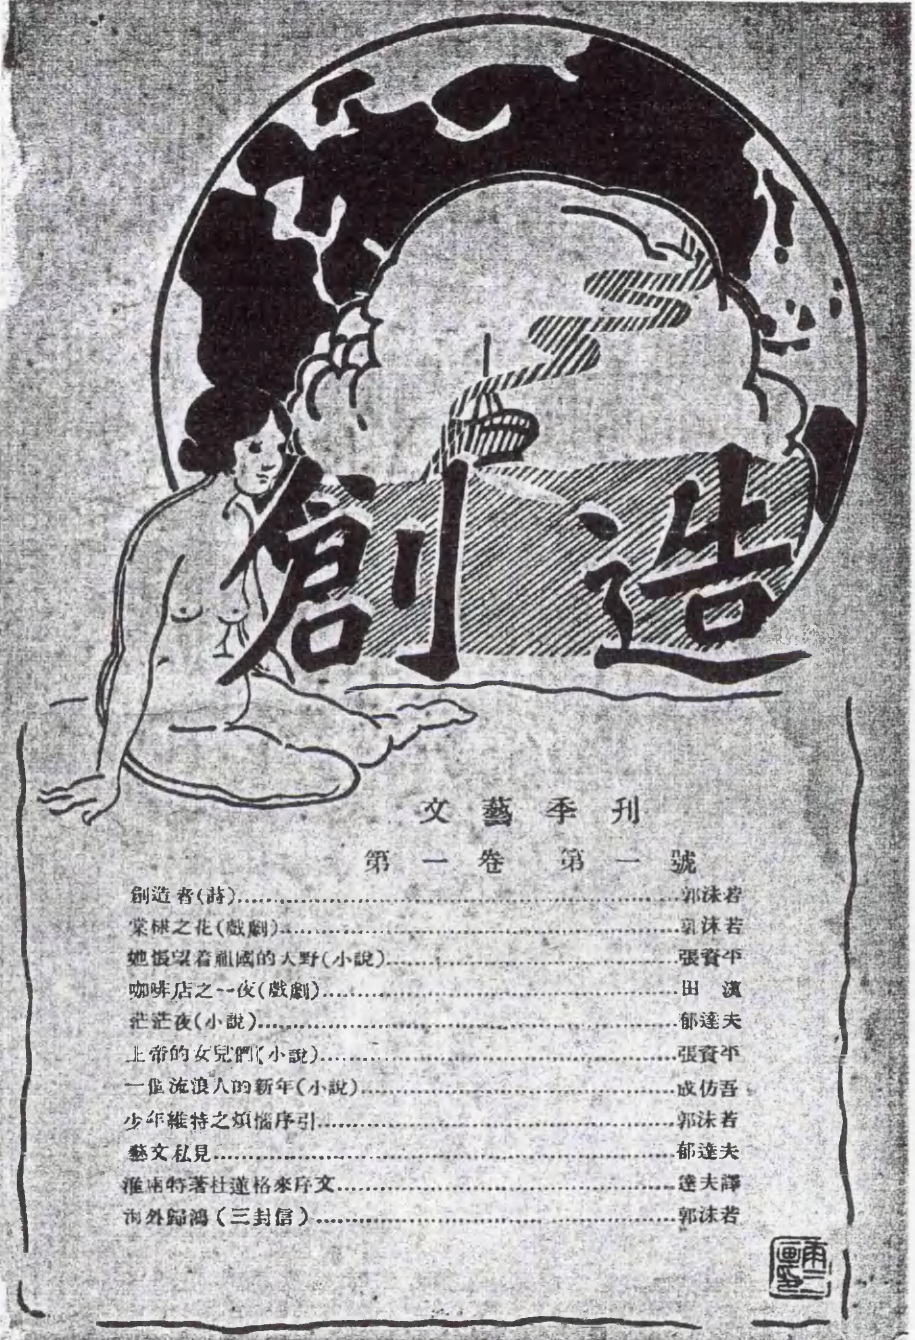 創造
文藝季刊
第一卷 第一號
創造者(詩)........................郭沫若
棠棣之花(戲劇)........................郭沫若
她悵望着祖國的大野(小說)........................張資平
咖啡店之一夜(戲劇)........................田 漢
茫茫夜(小說)........................郁達夫
上帝的女兒們(小說)........................張資平
一個流浪人的新年(小說)........................成仿吾
少年維特之煩惱序引........................郭沫若
藝文私見........................郁達夫
淮爾特著杜蓮格來序文........................達夫譯
海外歸鴻(三封信)........................郭沫若